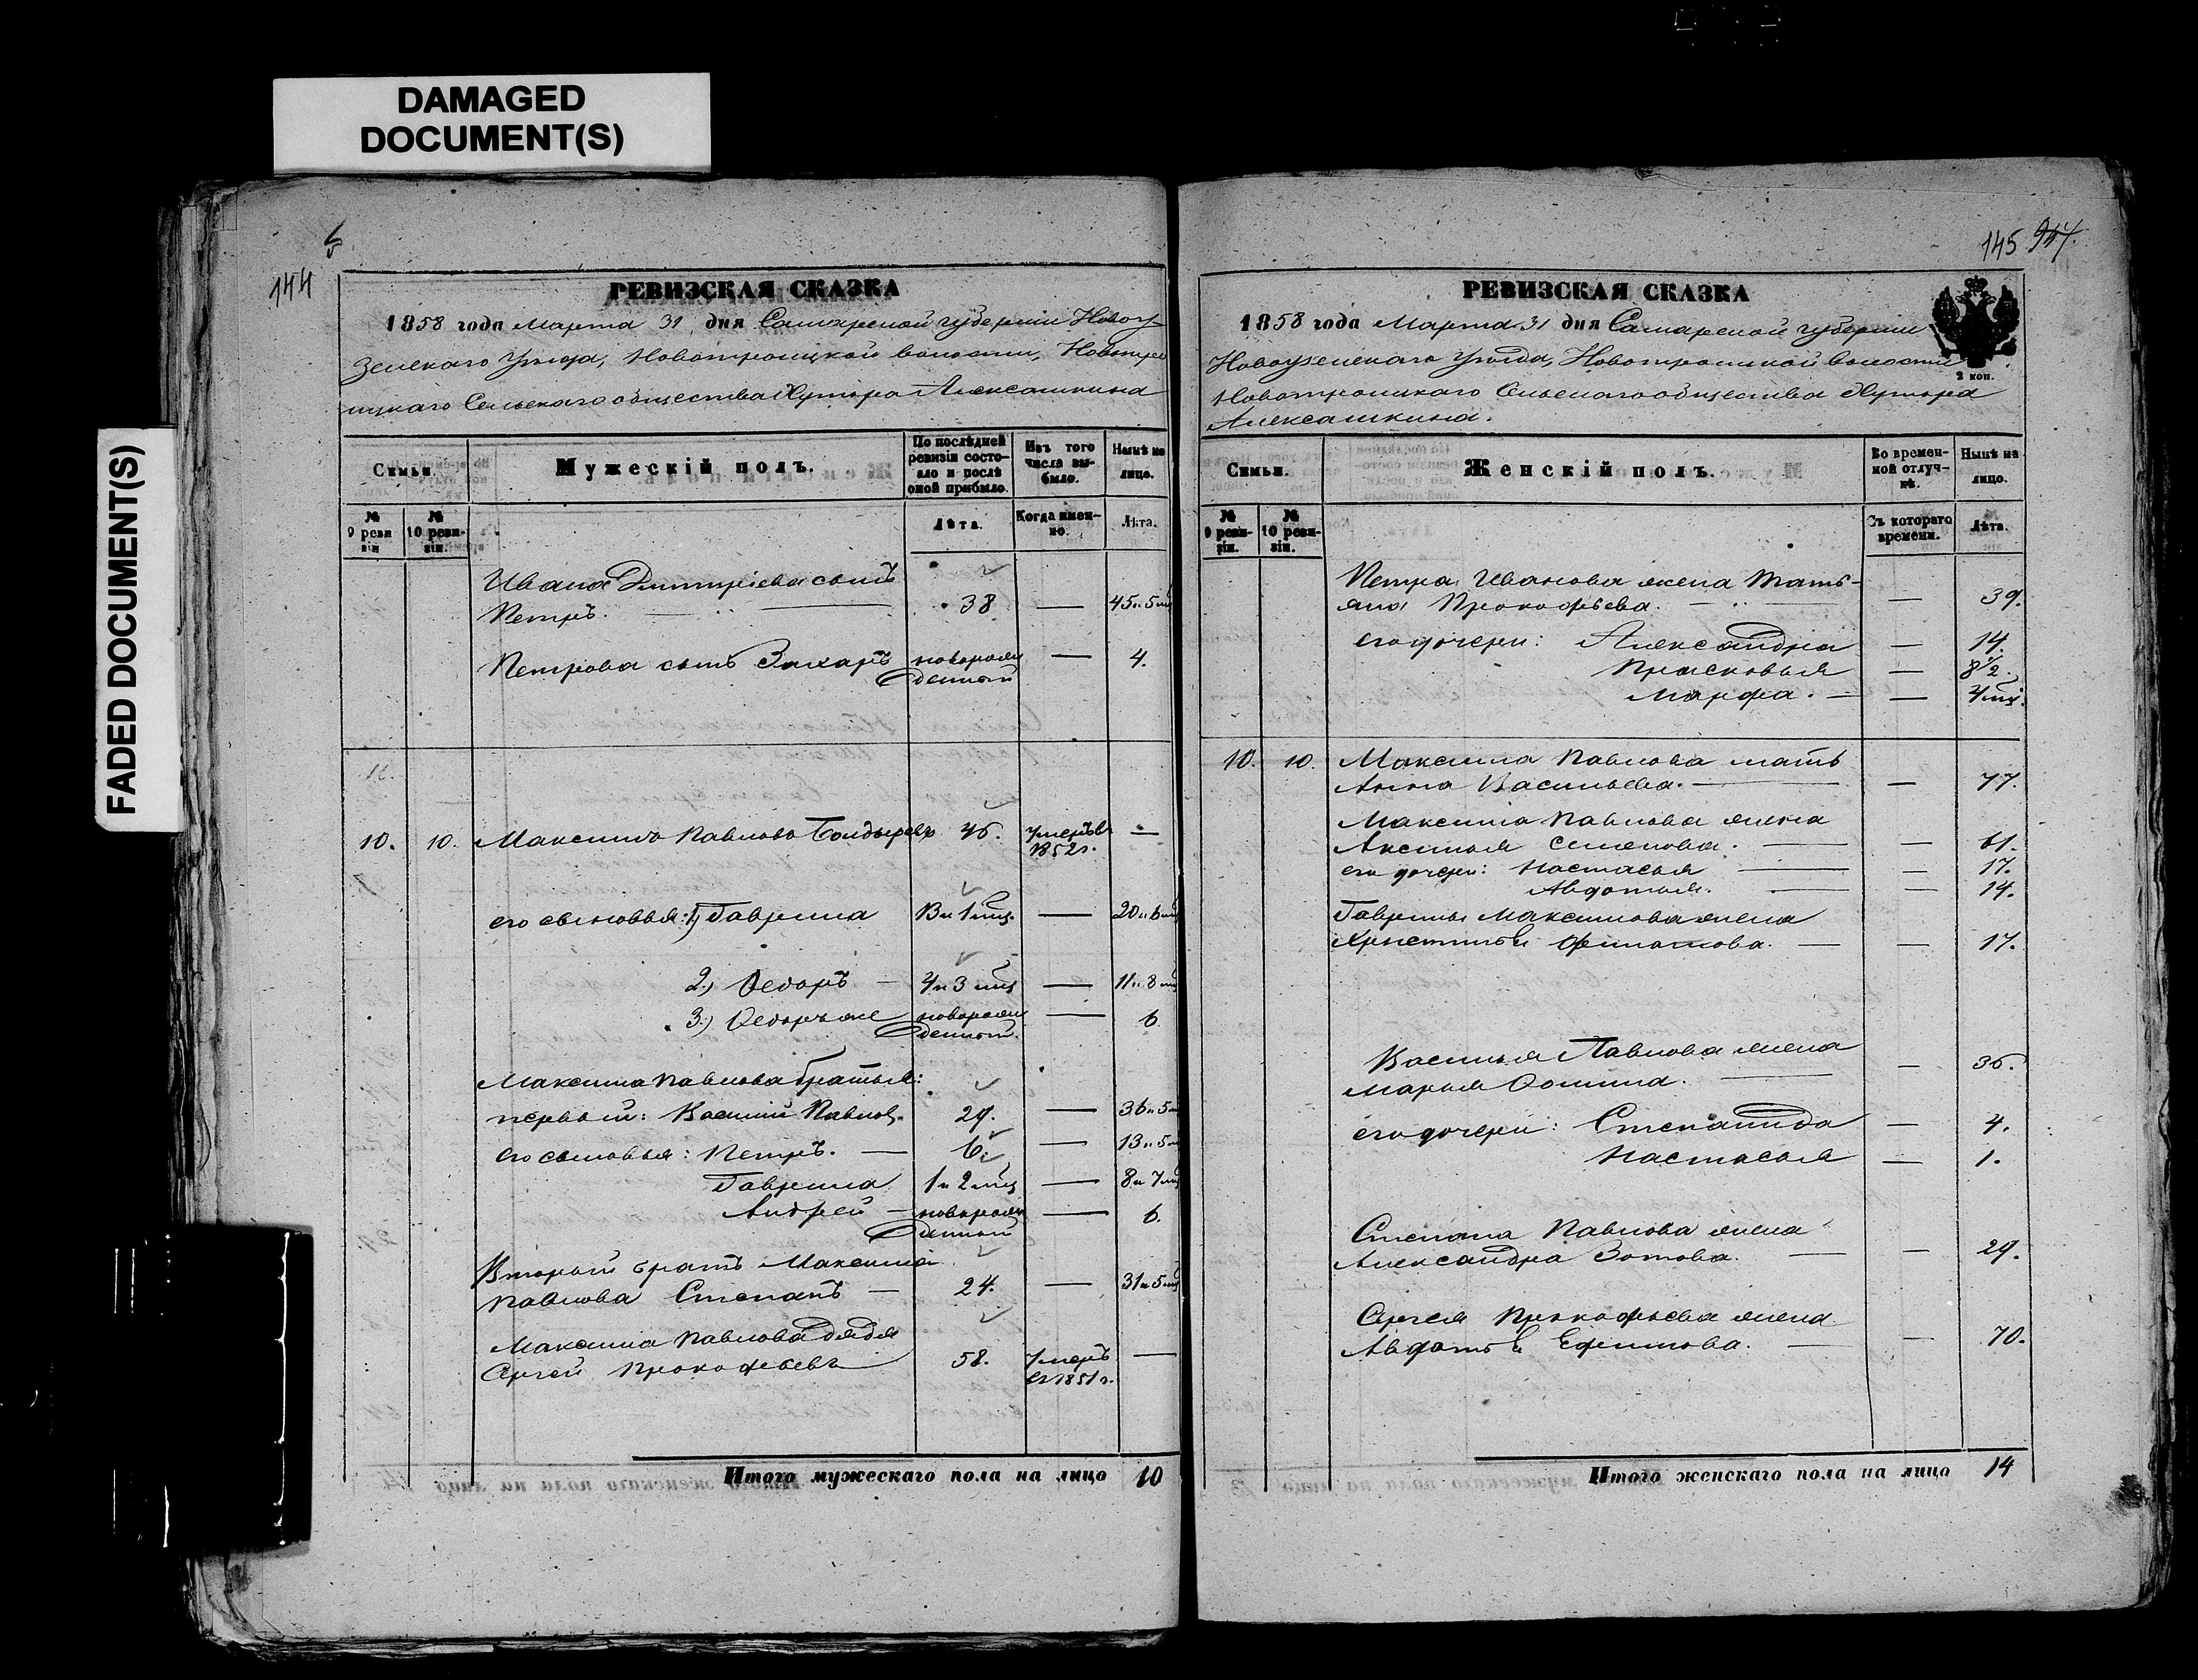 DAMAGED
DOCUMENT(S)
FADED DOCUMENT(S)
144
РЕВИЗСКАЯ СКАЗКА
1858 года Марта 31 дня Самарской губернии Новоу-
зенскаго Уѣзда, Новотроицкой волости, Новотро
ицкаго Сельскаго общества Хутора Алексашкина
Семьи.
Мужескій полъ.
По послѣдней ревизіи состояло и послѣ оной прибыло.
Изъ того числа выбыло.
Нынѣ на лицо.
№ 9 ревизіи
№ 10 ревизіи.
Лѣта.
Когда именно.
Лѣта.
Ивана Дмитріева сынъ
Петръ. — 38 — 45 и 5 мц
Петрова сынъ Захаръ новорожденный — 4.
10. 10. Максимъ Павловъ Болдыревъ 45. Умеръ въ 1852 г. —
его сыновья: 1) Гаврила 13 и 1 мц. — 20 и 6 мц
2.) Ѳедоръ — 4 и 3 мц — 11 и 8 мц
3.) Ѳедоръ же новорожденный. — 6.
Максима Павлова братья:
первый: Василий Павлов. 29. — 36 и 5 м
его сыновья: Петръ. — 6. — 13 и 5 м
Гаврила 1 и 2 мц — 8 и 7 мц
Андрей — новорожденный — 6.
Второй братъ Максима
Павлова Степанъ — 24. — 31 и 5 мц
Максима Павлова дядя
Сергей Прокофьевъ 58. Умеръ въ 1851 г. —
Итого мужескаго пола на лицо 10
145
РЕВИЗСКАЯ СКАЗКА
1858 года Марта 31 дня Самарской губернии
Новоузенскаго Уѣзда, Новотроицкой волости
Новотроицкаго Сельскаго общества Хутора
Алексашкина.
2 коп.
Семьи.
Женскій полъ.
Во временной отлучкѣ.
Нынѣ на лицо.
№ 9 ревизіи.
№ 10 ревизіи.
Съ котораго времени.
Лѣта.
Петра Иванова жена Тать-
яна Прокофьева. — — 39.
его дочери: Александра — 14.
Прасковья — 8 1/2
Марфа. — — 4 мц.
10. 10. Максима Павлова мать
Анна Васильева. — — 77.
Максима Павлова жена
Аксинья Семенова. — — 61.
его дочери: Настасья — — 17.
Авдотья. — — 14.
Гаврилы Максимова жена
Христинья Филатова. — — 17.
Василья Павлова жена
Марья Фомина. — — 36.
его дочери: Степанида — 4.
Настасья — 1.
Степана Павлова жена
Александра Зотова. — — 29.
Сергея Прокофьева жена
Авдотья Ефимова. — — 70.
Итого женскаго пола на лицо 14